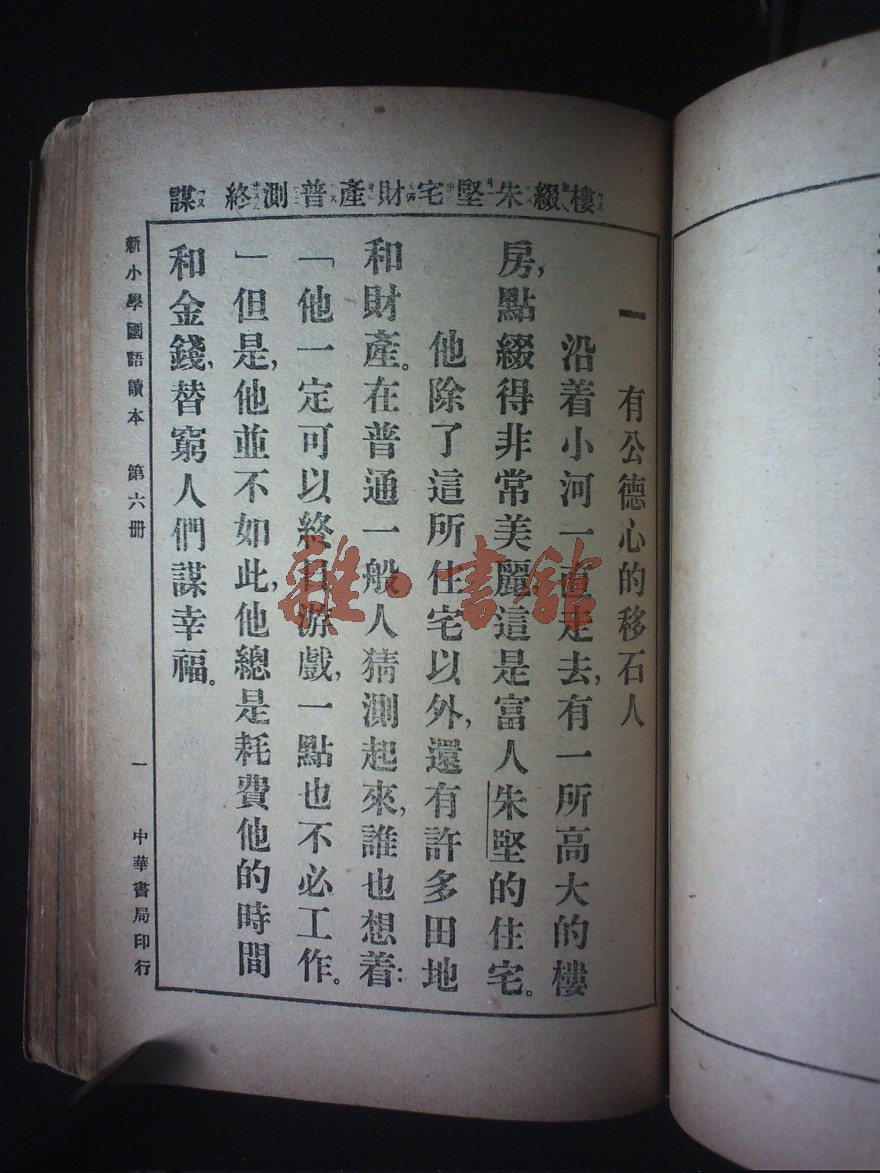 樓綴朱堅宅財產普測終謀
一 有公德心的移石人
沿着小河一直走去,有一所高大的樓
房,點綴得非常美麗這是富人朱堅的住宅。
他除了這所住宅以外,還有許多田地
和財產。在普通一般人猜測起來,誰也想着:
「他一定可以終日游戲,一點也不必工作。
」但是,他並不如此,他總是耗費他的時間
和金錢,替窮人們謀幸福。
新小學國語讀本 第六冊 一 中華書局印行
雜·書館